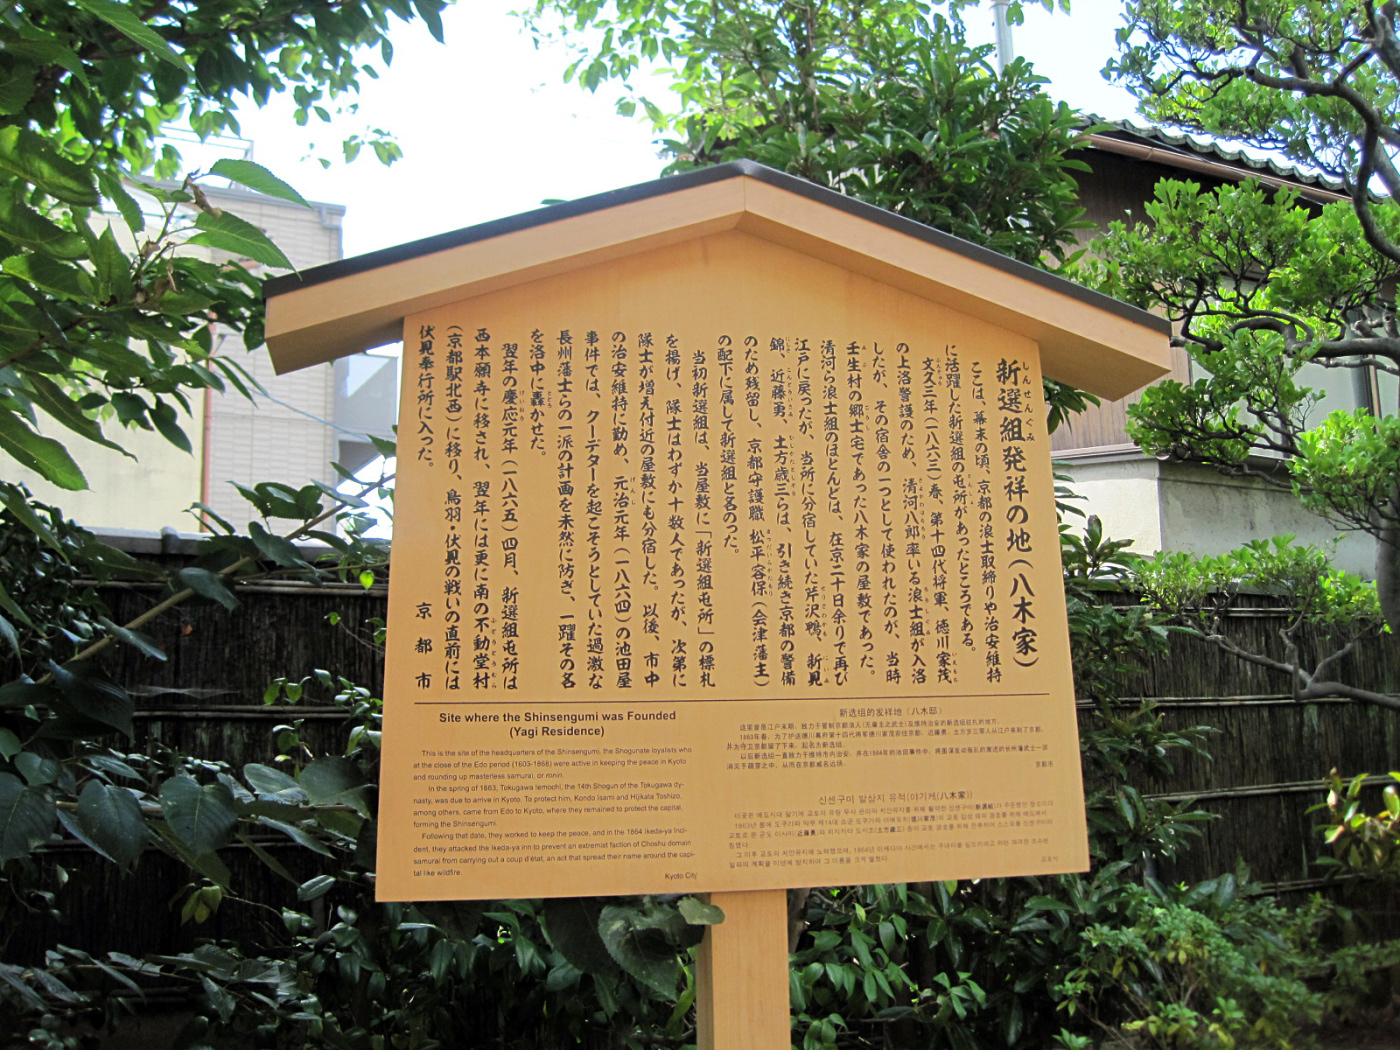 新選組発祥の地（八木家）
しんせんぐみ
ここは、幕末の頃、京都の浪士取締りや治安維持
に活躍した新選組の屯所があったところである。
文久三年（一八六三）春、第十四代将軍、徳川家茂
の上洛警護のため、清河八郎率いる浪士組が入洛
したが、その宿舎の一つとして使われたのが、当時
壬生村の郷士宅であった八木家の屋敷であった。
清河ら浪士組のほとんどは、在京二十日余りで再び
江戸に戻ったが、当所に分宿していた芹沢鴨、新見
錦、近藤勇、土方歳三らは、引き続き京都の警備
のため残留し、京都守護職 松平容保（会津藩主）
の配下に属して新選組と名のった。
当初新選組は、当屋敷に「新選組屯所」の標札
を揚げ、隊士はわずか十数人であったが、次第に
隊士が増え付近の屋敷にも分宿した。以後、市中
の治安維持に勤め、元治元年（一八六四）の池田屋
事件では、クーデターを起こそうとしていた過激な
長州藩士らの一派の計画を未然に防ぎ、一躍その名
を洛中に轟かせた。
翌年の慶応元年（一八六五）四月、新選組屯所は
西本願寺に移され、翌年には更に南の不動堂村
（京都駅北西）に移り、鳥羽・伏見の戦いの直前には
伏見奉行所に入った。
京都市
Site where the Shinsengumi was Founded
(Yagi Residence)
This is the site of the headquarters of the Shinsengumi, the Shogunate loyalists who
at the close of the Edo period (1603-1868) were active in keeping the peace in Kyoto
and rounding up masterless samurai, or ronin.
In the spring of 1863, Tokugawa Iemochi, the 14th Shogun of the Tokugawa dy-
nasty, was due to arrive in Kyoto. To protect him, Kondo Isami and Hijikata Toshizo,
among others, came from Edo to Kyoto, where they remained to protect the capital,
forming the Shinsengumi.
Following that date, they worked to keep the peace, and in the 1864 Ikeda-ya Inci-
dent, they attacked the Ikeda-ya inn to prevent an extremist faction of Choshu domain
samurai from carrying out a coup d'état, an act that spread their name around the capi-
tal like wildfire.
Kyoto City
新选组的发祥地（八木邸）
这里曾是江户末期，致力于管制京都浪人(无雇主之武士)及维持治安的新选组驻扎的地方。
1863年春，为了护送德川幕府第十四代将军德川家茂前往京都，近藤勇、土方岁三等人从江户来到了京都，
并为守卫京都留了下来，起名为新选组。
以后新选组一直致力于维持市内治安，并在1864年的池田事件中，
京都市
신센구미 발상지 유적(야기케(八木家))